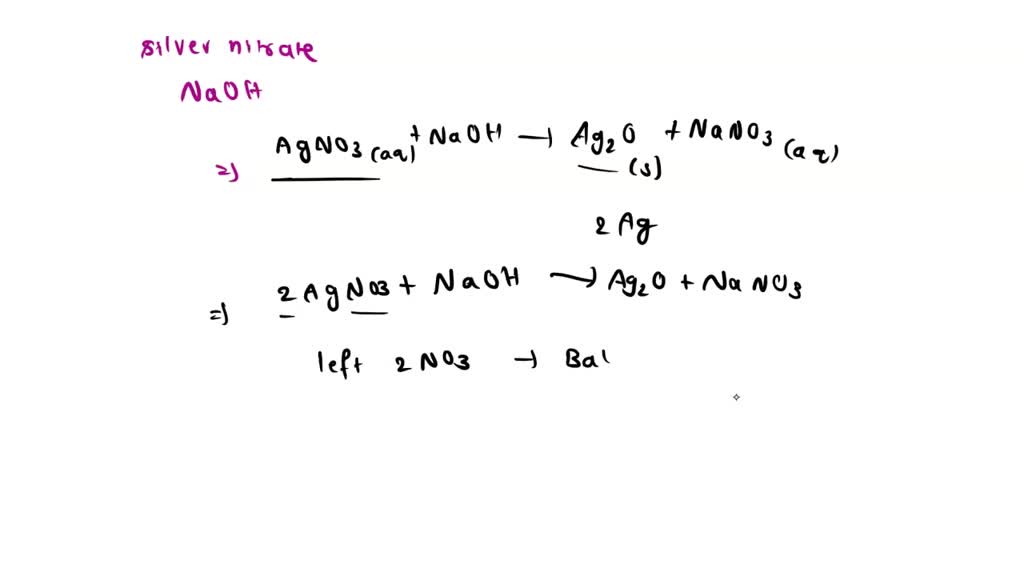 silver nitrate
NaOH
⇒ AgNO3 (aq) + NaOH → Ag2O (s) + NaNO3 (aq)
2 Ag
⇒ 2 AgNO3 + NaOH → Ag2O + NaNO3
left 2 NO3 → Bal